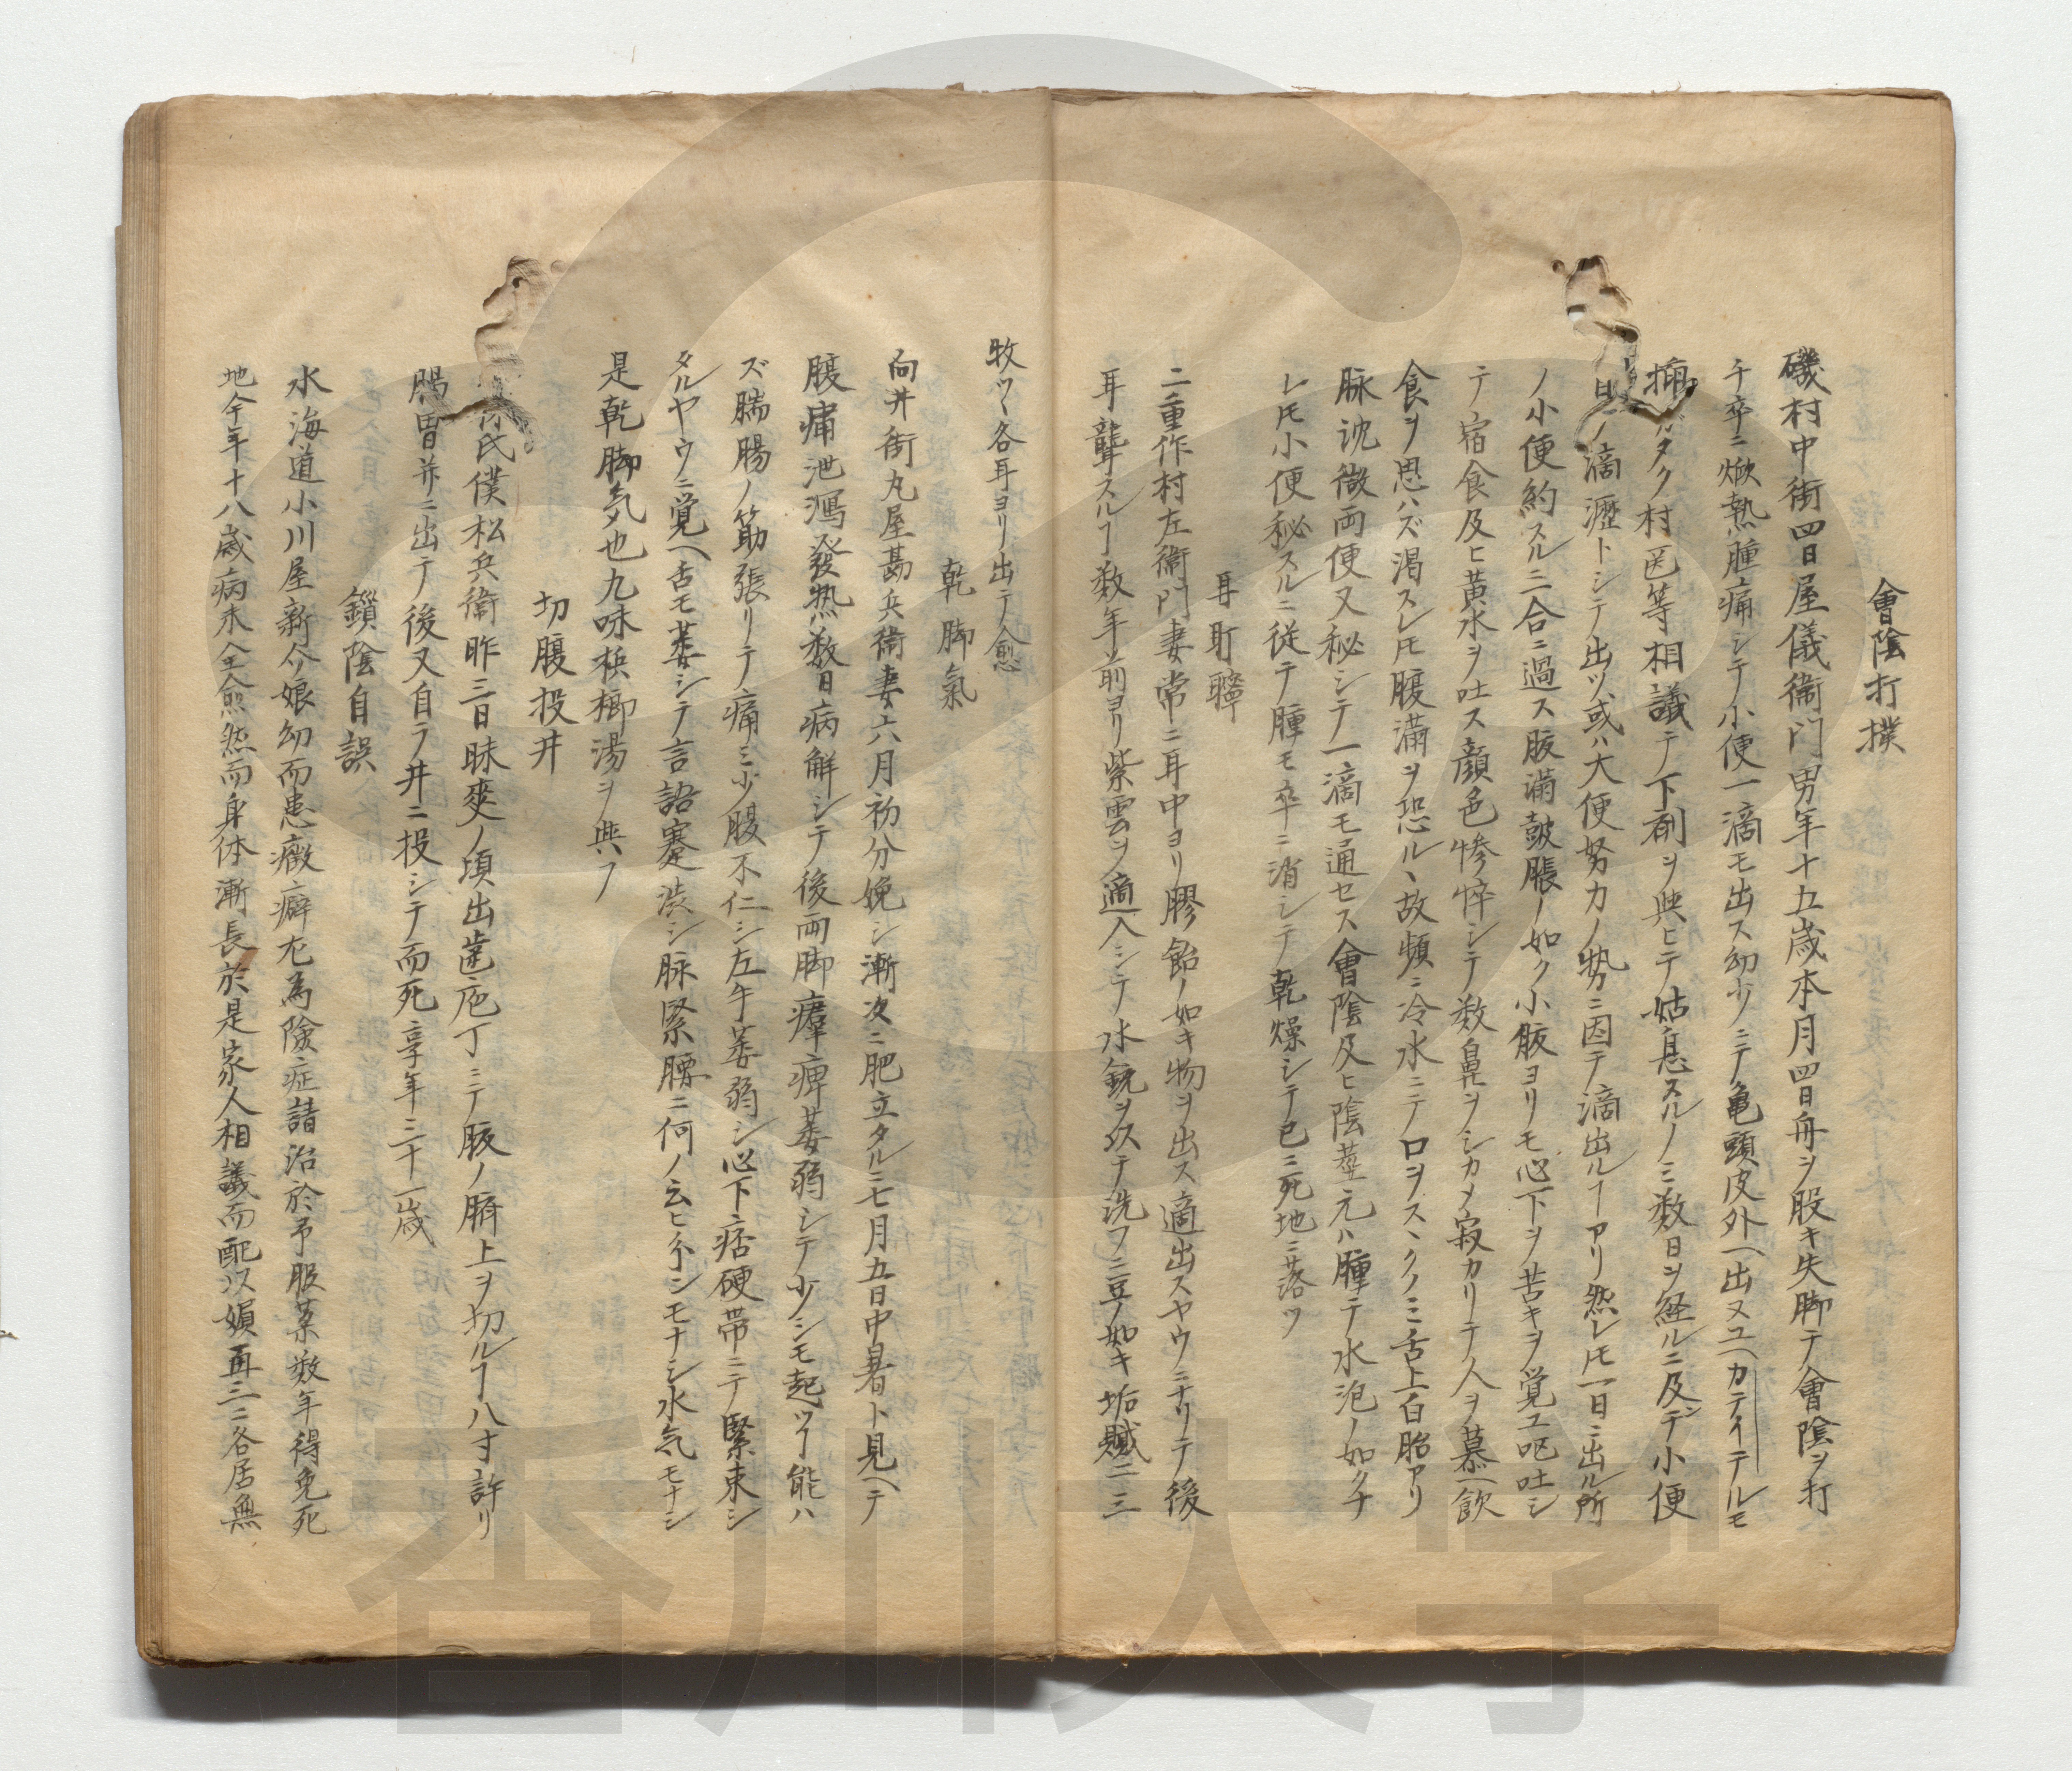 會陰打撲
磯村中街四日屋儀衛門男年十五歳本月四日舟ヲ股キ失脚テ會陰ヲ打
チ卒ニ焮熱腫痛シテ小便一滴モ出ス幼少ニテ亀頭皮外ヘ出ヌユヘカテイテルモ
挿 タク村医等相議テ下剤ヲ與ヒテ姑息スルノミ数日ヲ経ルニ及デ小便
日々ノ滴瀝トシテ出ツ或ハ大便努力ノ勢ニ因テ滴出ルヿアリ然レ𪜈一日ニ出ル所
ノ小便約スルニ二合ニ過ス腹滿皷脹ノ如ク小腹ヨリモ心下ヲ苦キヲ覚ユ呕吐シ
テ宿食及ヒ黄水ヲ吐ス顔色惨悴シテ数鼻ヲシカメ寂カリテ人ヲ慕ヘ飲
食ヲ思ハズ渇スレ𪜈腹滿ヲ恐ル故頻ニ冷水ニテ口ヲスヽクノミ舌上白胎アリ
脉沈微両便又秘シテ一滴モ通セス會陰及ヒ陰莖元ハ腫テ水泡ノ如クナ
レ𪜈小便秘スルニ従テ腫モ卒ニ消シテ乾燥シテ已ニ死地ニ落ツ
耳耵聹
二重作村左衛門妻常ニ耳中ヨリ膠飴ノ如キ物ヲ出ス適出スヤウニナリテ後
耳聾スルヿ数年前ヨリ紫雲ヲ適入シテ水銃ヲ以テ洗フニ豆ノ如キ垢膩二三
牧ツヽ各耳ヨリ出テ愈
乾脚氣
向井街丸屋甚兵衛妻六月初分娩シ漸次ニ肥立タルニ七月五日中暑ト見ヘテ
腹痛泄瀉發熱数日病解シテ後両脚痺萎弱シテ少シモ起ツヿ能ハ
ズ腨腸ノ筋張リテ痛ミ少腹不仁シ左午萎弱シ心下痞硬帯ニテ緊束シ
タルヤウニ覚ヘ舌モ萎シテ言語蹇渋シ脉緊腰ニ何ノ云ヒ分シモナシ水気モナシ
是乾脚気也九味梹榔湯ヲ與フ
切腹投井
氏僕松兵衛昨三日昧爽ノ頃出歯庖丁ニテ腹ノ臍上ヲ切ルヿ八寸許リ
腸胃並ニ出テ後又自ラ井ニ投シテ而死享年三十一歳
鎖陰自誤
水海道小川屋新介娘幼而患癥癖尤為險症請治於予服薬数年得免死
地今年十八歳病未全愈然而身体漸長於是家人相議而配以嬪再三ニ各居無
香川大学